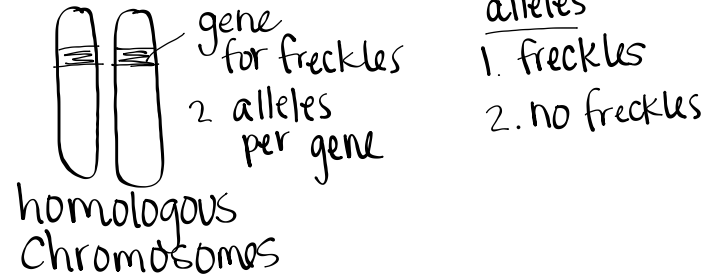 gene
for freckles
2 alleles
per gene
homologous
Chromosomes
alleles
1. freckles
2. no freckles